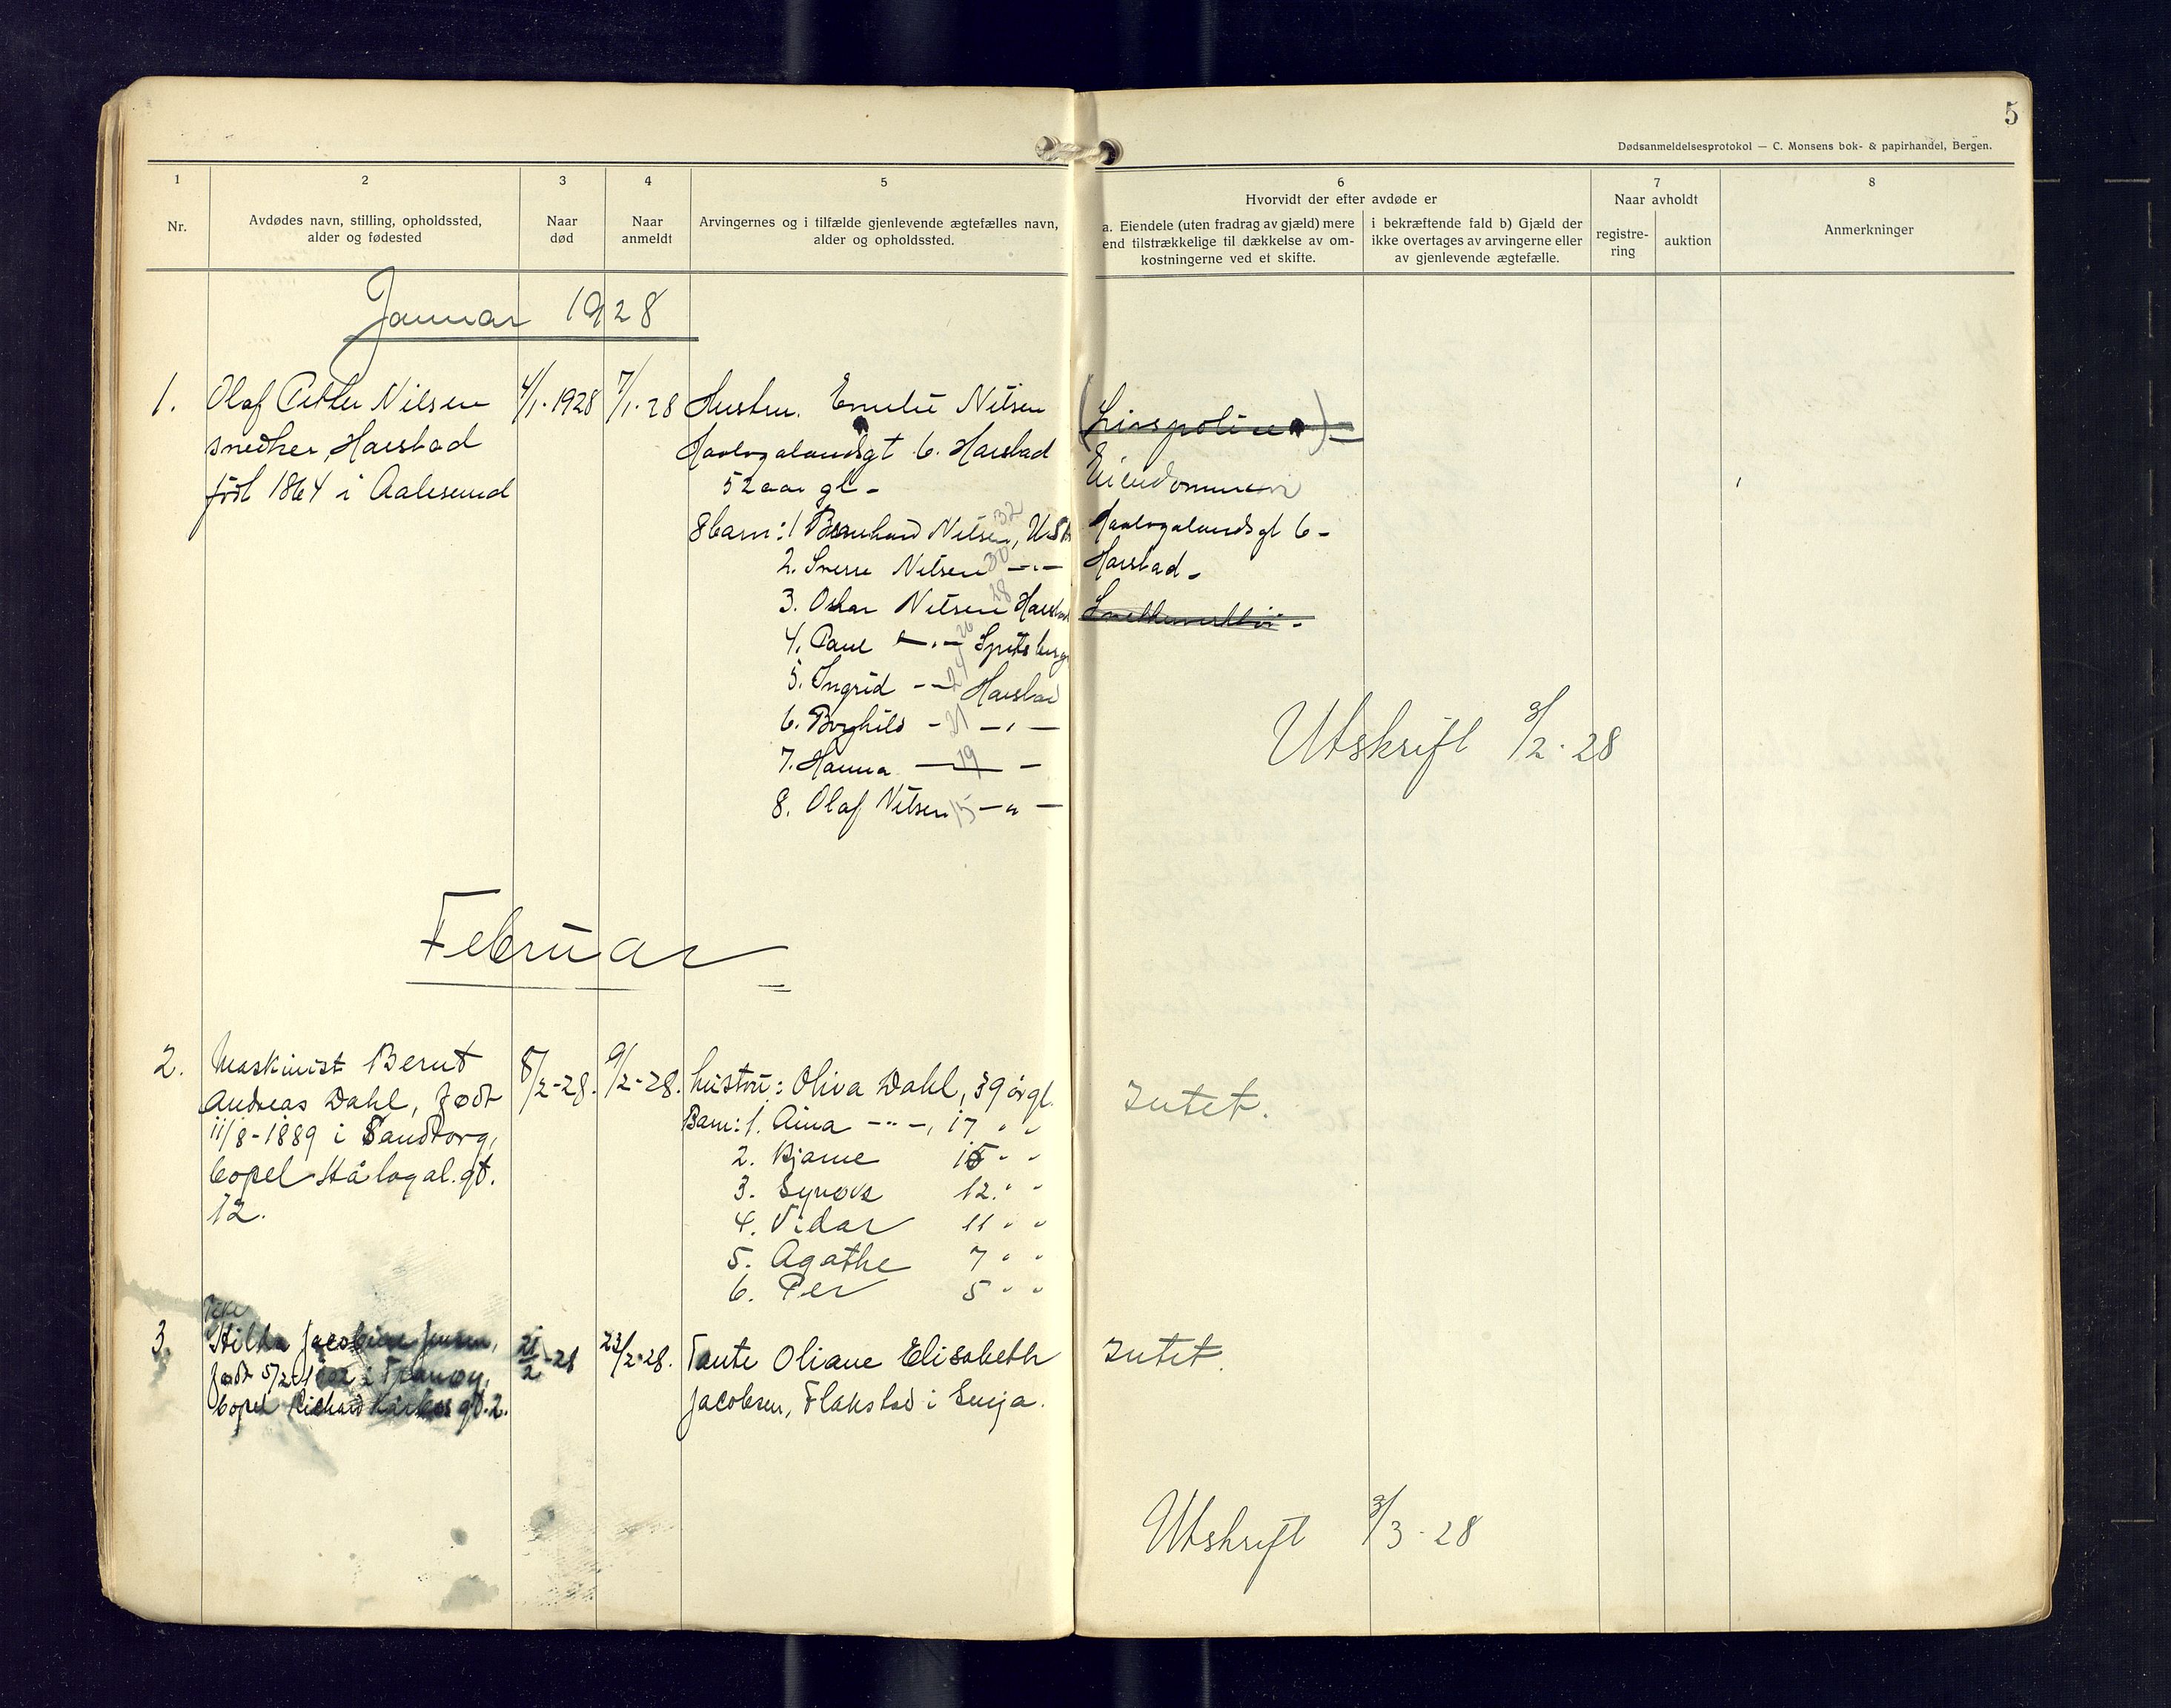 5
Dødsanmeldelsesprotokol — C. Monsens bok- & papirhandel, Bergen.
1
Nr.
2
Avdødes navn, stilling, opholdssted,
alder og fødested
3
Naar
død
4
Naar
anmeldt
5
Arvingernes og i tilfælde gjenlevende ægtefælles navn,
alder og opholdssted.
6
Hvorvidt der efter avdøde er
a. Eiendele (uten fradrag av gjæld) mere
end tilstrækkelige til dækkelse av om-
kostningerne ved et skifte.
i bekræftende fald b) Gjæld der
ikke overtages av arvingerne eller
av gjenlevende ægtefælle.
7
Naar avholdt
registre-
ring
auktion
8
Anmerkninger
Januar 1928
1.
Olaf Petter Nilsen
snedker, Harstad
født 1864 i Aalesund
4/1. 1928
7/1. 28
Hustru. Emelie Nilsen
Haalogalandsgt. 6. Harstad
52 aar gl -
8 barn: 1 Bernhard Nilsen, 32 USA
2. Sverre Nilsen 30 — " —
3. Oskar Nilsen 28 Harstad
4. Paul — " — 26 Spitsberg
5. Ingrid - - 24 Harstad
6. Borghild - 21 — " —
7. Hanna — 19 —
8. Olaf Nilsen 15 — " —
(Livspolise)
Eiendommen
Haalogalandsgt 6 -
Harstad -
Utskrift 3/2. 28
Februar
2.
Maskinist Bernt
Andreas Dahl, født
11/8 - 1889 i Sandtorg,
bopel Hålogal. gt.
12.
8/2 - 28.
9/2 - 28.
hustru: Oliva Dahl, 39 år gl.
Barn: 1. Aina — " —, 17 " "
2. Bjarne 15 " "
3. Synøve 12. " "
4. Vidar 11 " "
5. Agathe 7 " "
6. Per 5 " "
Intet.
3.
Hilda Jacobine Jensen,
født 5/2-1902 i Tranøy,
bopel Richard Kaarbøs gt. 2.
21/2 - 28
23/2 - 28.
Tante Oliane Elisabeth
Jacobsen, Flakstad i Senja.
Intet.
Utskrift 3/3 - 28